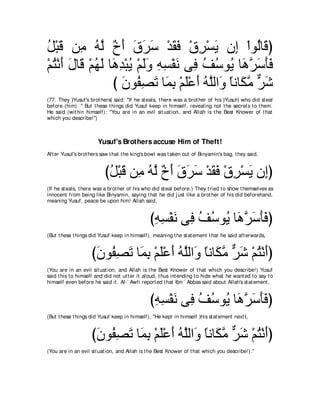 (قَالُواْ إِن يَسْرِقْ فَقَدْ سَرَقَ أَخٌ لَّهُ مِن قَبْلُ
فَأَسَرَّهَا يُوسُفُ فِى نَفْسِهِ وَلَمْ يُبْدِهَا لَهُمْ قَالَ أَنْتُمْ
شَرٌّ مَّكَاناً وَاللَّهُ أَعْلَمْ بِمَا تَصِفُونَ )
(77. They (Yusuf's brothers) said: "If he steals, there was a brother of his (Yusuf) who did steal
before (him). " But these things did Yusuf keep in himself, revealing not the secrets to them.
He said (within himself): "You are in an evil situation, and Allah is the Best Knower of that
which you describe!")
Yusuf's Brothers accuse Him of Theft!
After Yusuf's brothers saw that the king's bowl was taken out of Binyamin's bag, they said,
(إِن يَسْرِقْ فَقَدْ سَرَقَ أَخٌ لَّهُ مِن قَبْلُ)
(If he steals, there was a brother of his who did steal before.) They tried to show themselves as
innocent from being like Binyamin, saying that he did just like a brother of his did beforehand,
meaning Yusuf, peace be upon him! Allah said,
(فَأَسَرَّهَا يُوسُفُ فِى نَفْسِهِ)
(But these things did Yusuf keep in himself), meaning the statement that he said afterwards,
(أَنْتُمْ شَرٌّ مَّكَاناً وَاللَّهُ أَعْلَمْ بِمَا تَصِفُونَ)
(You are in an evil situation, and Allah is the Best Knower of that which you describe!) Yusuf
said this to himself and did not utter it aloud, thus intending to hide what he wanted to say to
himself even before he said it. Al-`Awfi reported that Ibn `Abbas said about Allah's statement,
(فَأَسَرَّهَا يُوسُفُ فِى نَفْسِهِ)
(But these things did Yusuf keep in himself), "He kept in himself )his statement next(,
(أَنْتُمْ شَرٌّ مَّكَاناً وَاللَّهُ أَعْلَمْ بِمَا تَصِفُونَ)
(You are in an evil situation, and Allah is the Best Knower of that which you describe!)."